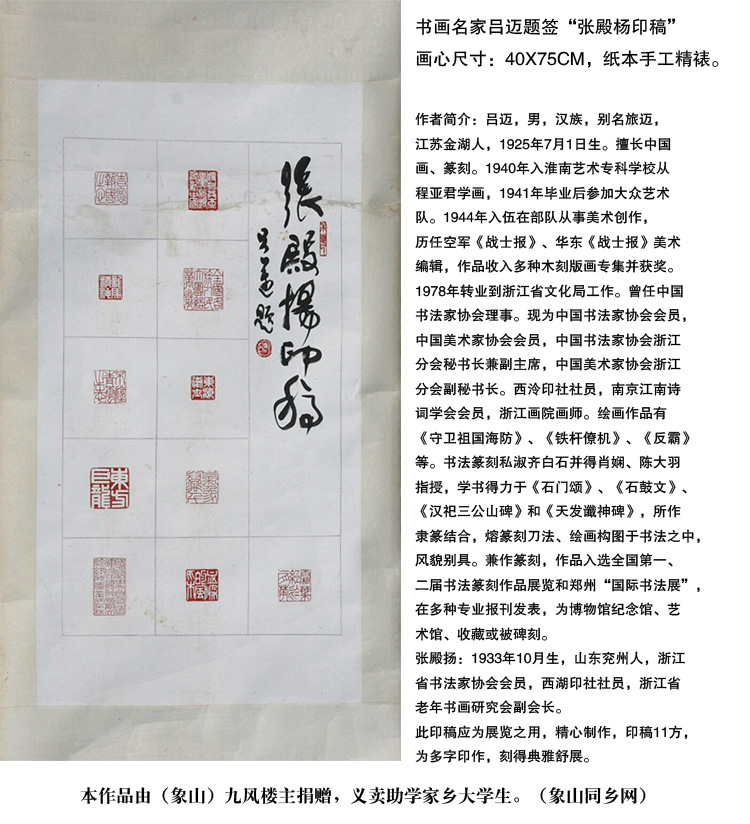 书画名家吕迈题签“张殿杨印稿”
画心尺寸：40X75CM，纸本手工精裱。
作者简介：吕迈，男，汉族，别名旅迈，
江苏金湖人，1925年7月1日生。擅长中国
画、篆刻。1940年入淮南艺术专科学校从
程亚君学画，1941年毕业后参加大众艺术
队。1944年入伍在部队从事美术创作，
历任空军《战士报》、华东《战士报》美术
编辑，作品收入多种木刻版画专集并获奖。
1978年转业到浙江省文化局工作。曾任中国
书法家协会理事。现为中国书法家协会会员，
中国美术家协会会员，中国书法家协会浙江
分会秘书长兼副主席，中国美术家协会浙江
分会副秘书长。西泠印社社员，南京江南诗
词学会会员，浙江画院画师。绘画作品有
《守卫祖国海防》、《铁杆僚机》、《反霸》
等。书法篆刻私淑齐白石并得肖娴、陈大羽
指授，学书得力于《石门颂》、《石鼓文》、
《汉祀三公山碑》和《天发谶神碑》，所作
隶篆结合，熔篆刻刀法、绘画构图于书法之中，
风貌别具。兼作篆刻，作品入选全国第一、
二届书法篆刻作品展览和郑州“国际书法展”，
在多种专业报刊发表，为博物馆纪念馆、艺
术馆、收藏或被碑刻。
张殿扬：1933年10月生，山东兖州人，浙江
省书法家协会会员，西湖印社社员，浙江省
老年书画研究会副会长。
此印稿应为展览之用，精心制作，印稿11方，
为多字印作，刻得典雅舒展。
張殿揚印稿
吕迈题
東方巨龍
本作品由（象山）九风楼主捐赠，义卖助学家乡大学生。（象山同乡网）